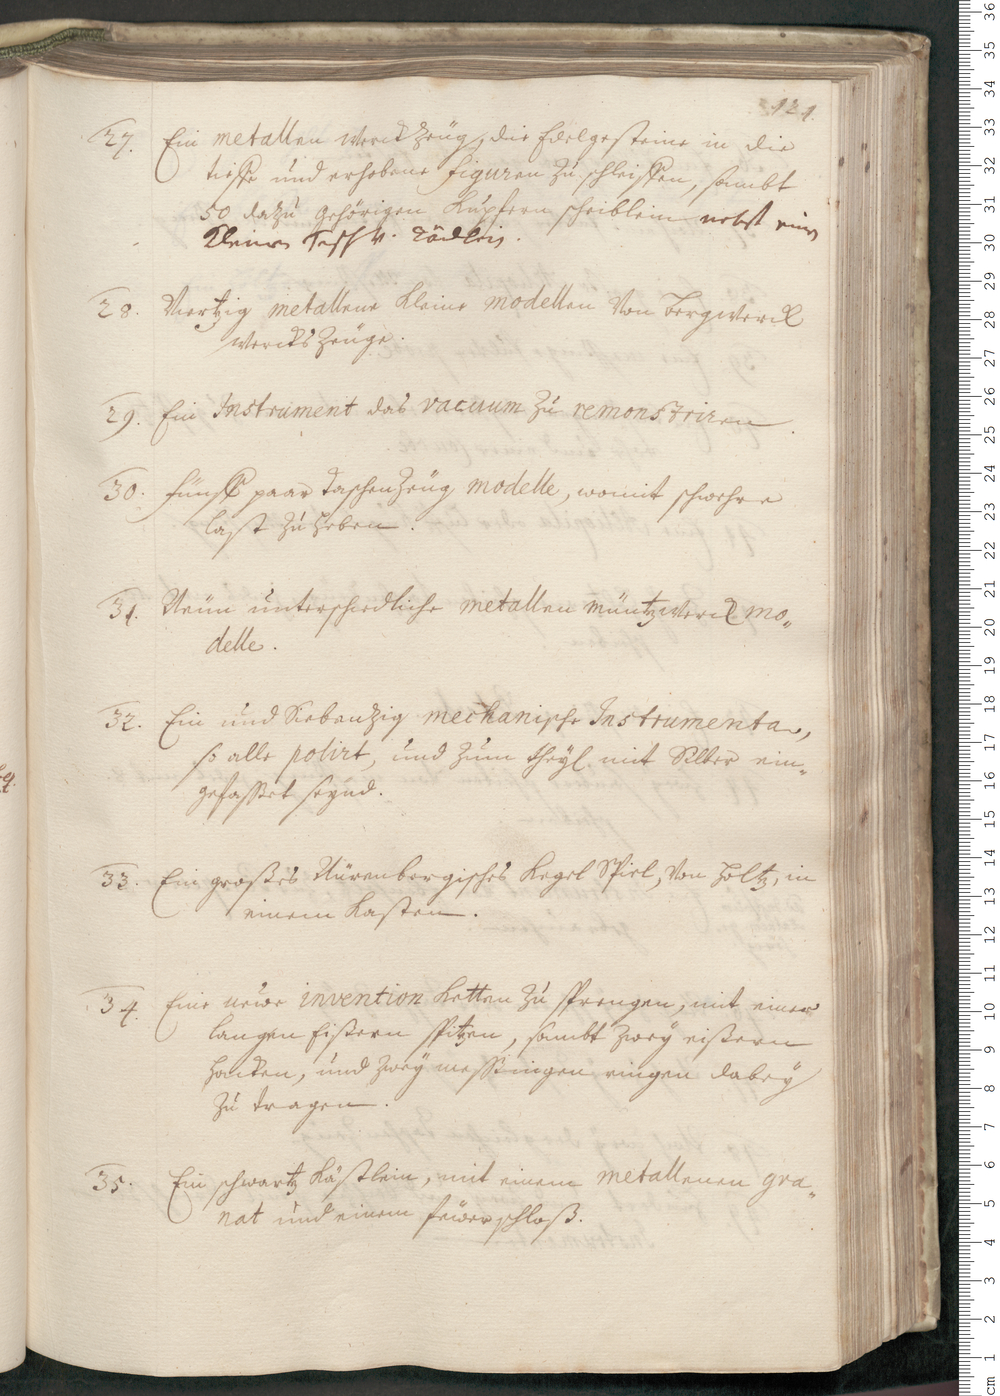 121.
27. Ein metallen werckzeüg, die Edelgesteine in die
tieffe und erhobene figuren zu schleiffen, sambt
50 dazu gehörigen Kupfern scheiblein nebst einem
Kleinen
28. Viertzig metallene kleine modellen von Bergwerck
werckszeüge.
29. Ein Instrument das vacuum zu remonstriren.
30. fünff paar taschenzeüg modelle, womit schwehre
last zu heben.
31. Neün unterschiedliche metallen müntzwerck mo„
delle.
32. Ein und Siebenzig mechanische Instrumenta,
so alle polirt, und zum theyl mit Silber ein„
gefasset seynd.
33. Ein großes Nürenbergisches Kegel Spiel, von Holtz, in
einem Kasten.
34. Eine neüe invention Ketten zu sprengen, mit einer
langen Eissern spitzen, sambt zweÿ eissern
hacken, und zweÿ messingen ringen dabeÿ
zu tragen.
35. Ein schwartz Kästlein, mit einem metallenen gra„
nat und einem feüerschloß.